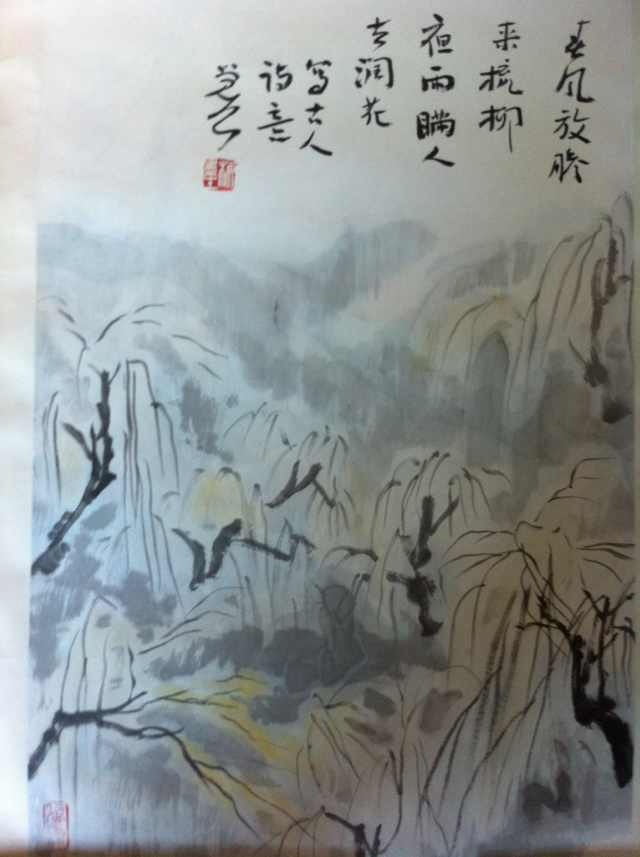 春风放膽
来梳柳
夜雨瞒人
去润花
寫古人
诗意